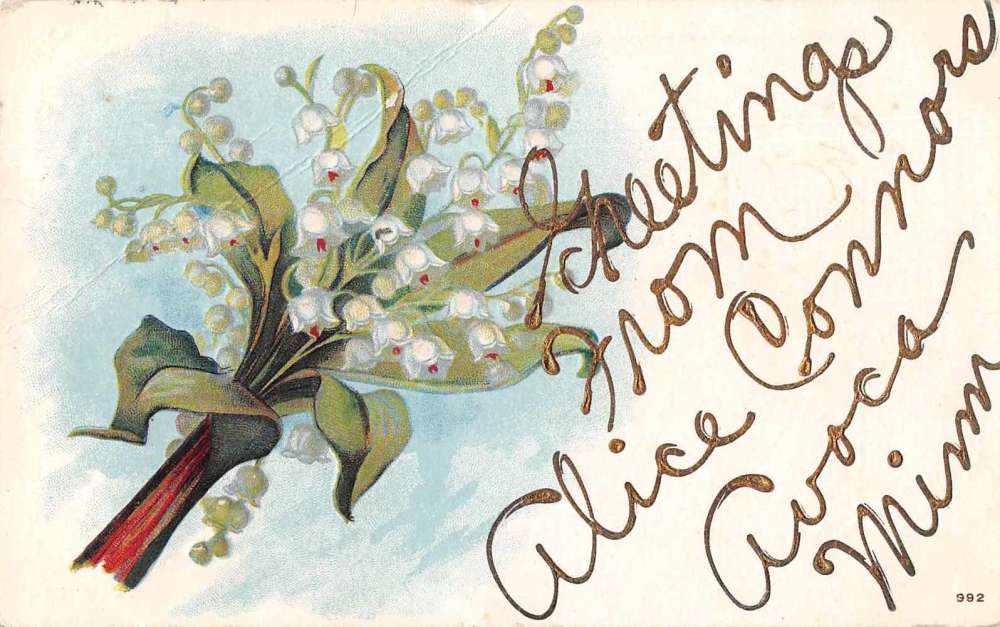 Greetings
From
Alice Connors
Avoca
Minn
992